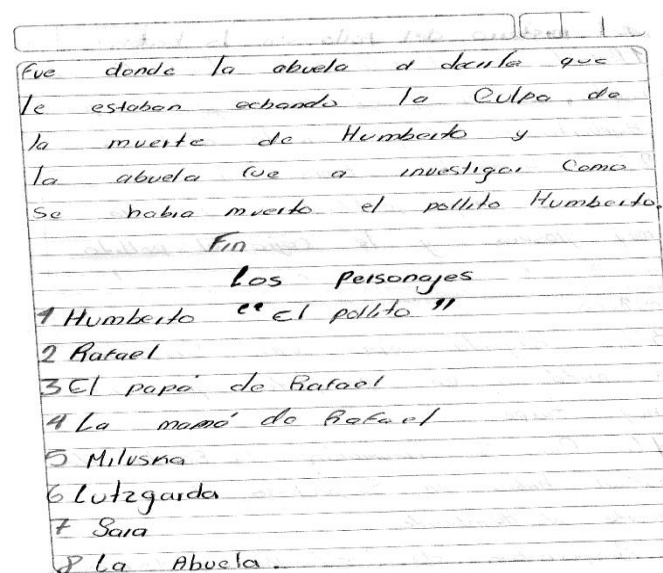 Fue donde la abuela a decirle que
le estaban echando la Culpa de
la muerte de Humberto y
la abuela fue a investigar Como
se habia muerto el pollito Humberto.
Fin
Los personajes
1 Humberto "El pollito"
2 Rafael
3 El papá de Rafael
4 La mamá de Rafael
5 Miluska
6 Lutzgarda
7 Sara
8 La Abuela.